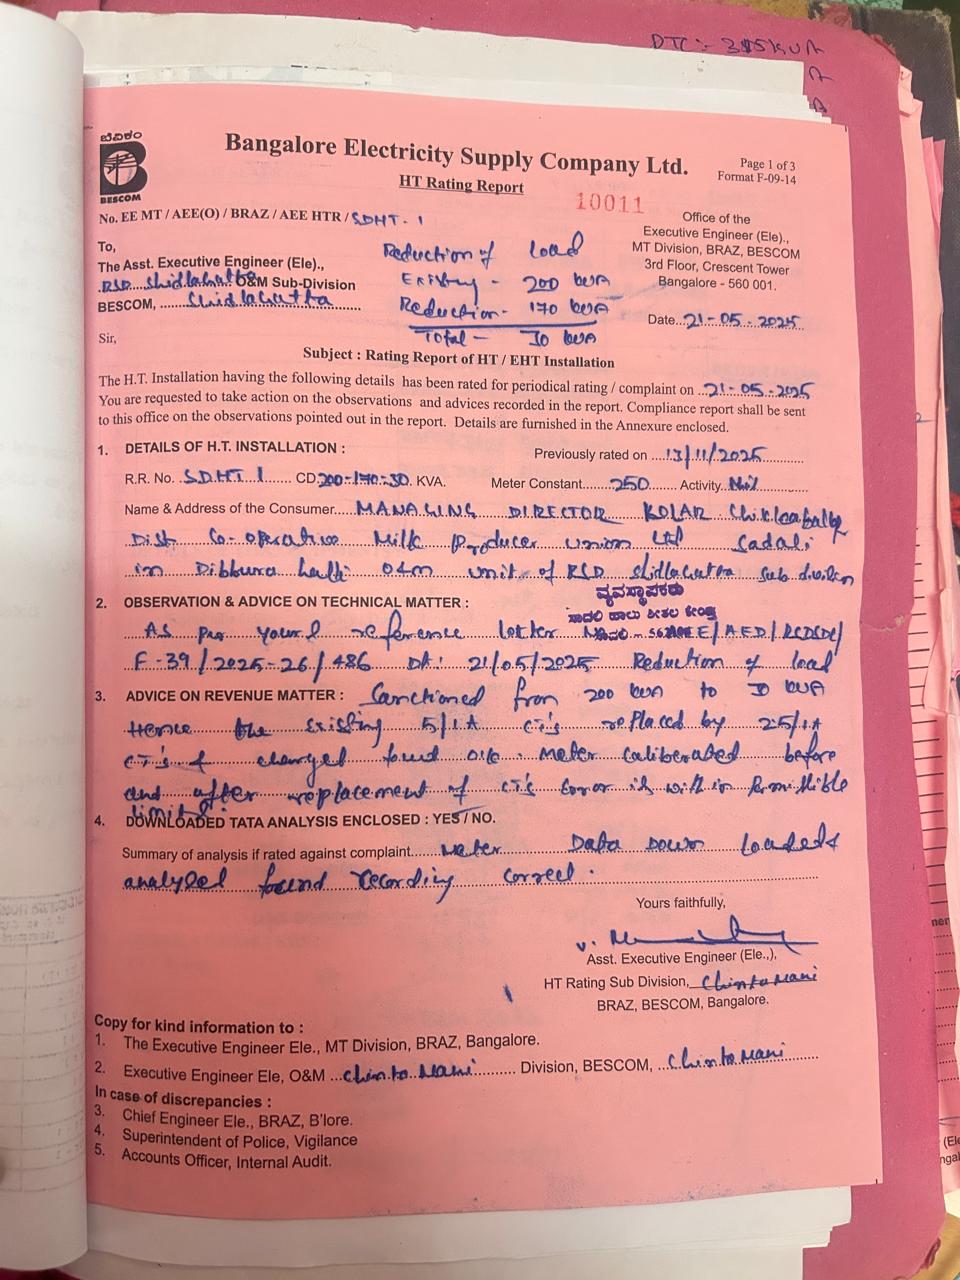 DTC :- 315 KVA
ಬೆವಿಕಂ
BESCOM
Bangalore Electricity Supply Company Ltd.
HT Rating Report
Page 1 of 3
Format F-09-14
10011
No. EE MT / AEE(O) / BRAZ / AEE HTR / SDHT-1
Office of the
Executive Engineer (Ele).,
MT Division, BRAZ, BESCOM
3rd Floor, Crescent Tower
Bangalore - 560 001.
To,
The Asst. Executive Engineer (Ele).,
RSD Shidlahatta O&M Sub-Division
BESCOM, Shidlahatta
Reduction of load
Existing - 200 KVA
Reduction - 170 KVA
Total - 30 KVA
Date 21-05-2025
Sir,
Subject : Rating Report of HT / EHT Installation
The H.T. Installation having the following details has been rated for periodical rating / complaint on 21-05-2025
You are requested to take action on the observations and advices recorded in the report. Compliance report shall be sent
to this office on the observations pointed out in the report. Details are furnished in the Annexure enclosed.
1. DETAILS OF H.T. INSTALLATION :
Previously rated on 13/11/2025
R.R. No. SDHT 1 CD 200-170-30 KVA. Meter Constant 250 Activity Nil
Name & Address of the Consumer MANAGING DIRECTOR KOLAR Chikkaballp
Dist Co-operative Milk Producer Union Ltd Sadali
in Dibburahalli O&M unit of RSD Shidlahatta Sub division
ವ್ಯವಸ್ಥಾಪಕರು
ಸಾದಲಿ ಹಾಲು ಶೀತಲ ಕೇಂದ್ರ
2. OBSERVATION & ADVICE ON TECHNICAL MATTER :
As per your reference letter No AEE/AED/RSDSDL/
F-39/2025-26/486 Dt: 21/05/2025 Reduction of load
3. ADVICE ON REVENUE MATTER : Sanctioned from 200 KVA to 30 KVA
Hence the existing 5/1A CT's replaced by 25/1A
CT's & changed found O.K. Meter caliberated before
and after replacement of CT's Error is with in permissible
limits.
4. DOWNLOADED TATA ANALYSIS ENCLOSED : YES / NO.
Summary of analysis if rated against complaint Meter Data Down loaded &
analysed found recording correct.
Yours faithfully,
Asst. Executive Engineer (Ele.,),
HT Rating Sub Division, Chintamani
BRAZ, BESCOM, Bangalore.
Copy for kind information to :
1. The Executive Engineer Ele., MT Division, BRAZ, Bangalore.
2. Executive Engineer Ele, O&M Chintamani Division, BESCOM, Chintamani
In case of discrepancies :
3. Chief Engineer Ele., BRAZ, B'lore.
4. Superintendent of Police, Vigilance
5. Accounts Officer, Internal Audit.